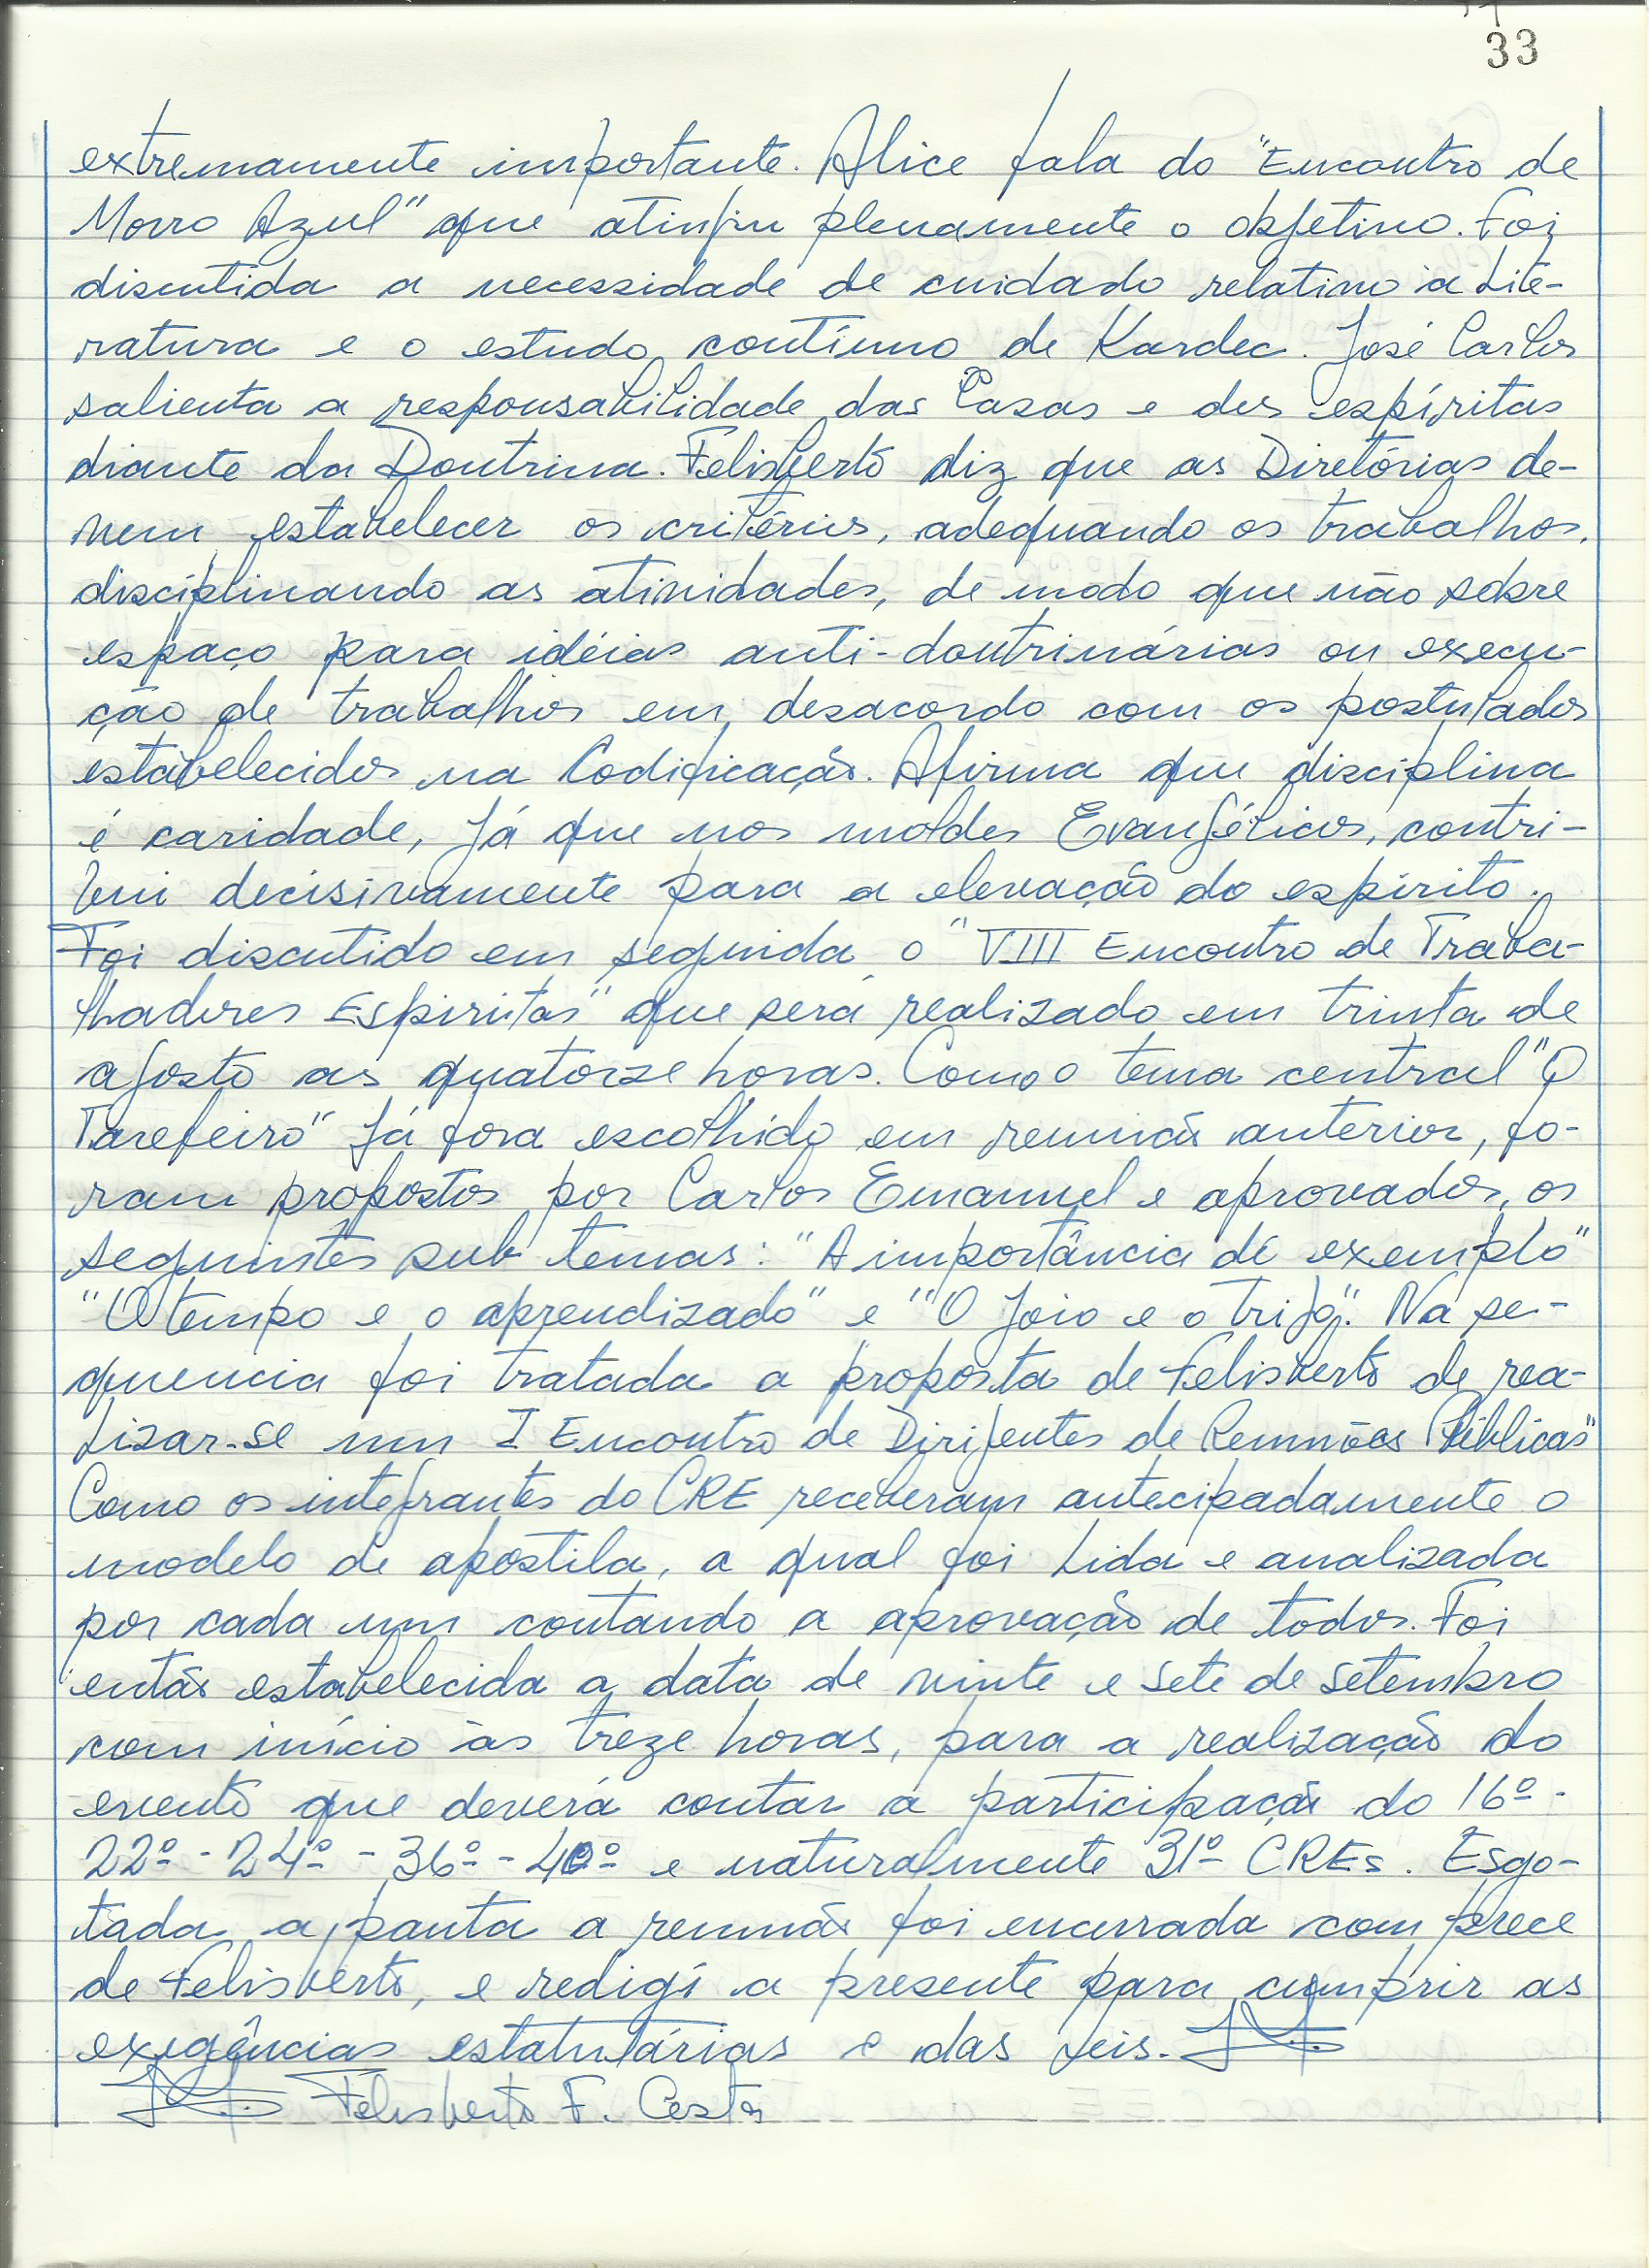 33
extremamente importante. Alice fala do "Encontro de
Morro Azul" que atingiu plenamente o objetivo. Foi
discutida a necessidade de cuidado relativo à Lite-
ratura e o estudo contínuo de Kardec. José Carlos
salienta a responsabilidade das Casas e dos espíritas
diante da Doutrina. Felisberto diz que as Diretórias de-
vem estabelecer os critérios, adequando os trabalhos,
disciplinando as atividades, de modo que não sobre
espaço para idéias anti-doutrinárias ou execu-
ção de trabalhos em desacordo com os postulados
estabelecidos na Codificação. Afirma que disciplina
é caridade, já que nos moldes Evangélicos, contri-
bui decisivamente para a elevação do espírito.
Foi discutido em seguida o "VIII Encontro de Traba-
lhadores Espíritas" que será realizado em trinta de
agosto as quatorze horas. Como o tema central "O
Tarefeiro" já fora escolhido em reunião anterior, fo-
ram propostos por Carlos Emanuel e aprovados, os
seguintes sub temas: "A importância de exemplo"
"O tempo e o aprendizado" e "O Joio e o trigo". Na se-
quencia foi tratada a proposta de Felisberto de rea-
lizar-se um I Encontro de Dirigentes de Reuniões Públicas"
Como os integrantes do CRE receberam antecipadamente o
modelo de apostila, a qual foi lida e analizada
por cada um contando a aprovação de todos. Foi
então estabelecida a data de vinte e sete de setembro
com início às treze horas, para a realização do
evento que deverá contar a participação do 16º -
22º - 24º - 36º - 40º e naturalmente 31º CREs. Esgo-
tada a pauta a reunião foi encerrada com prece
de Felisberto, e redigi a presente para cumprir as
exigências estatutárias e das leis.
Felisberto F. Costa